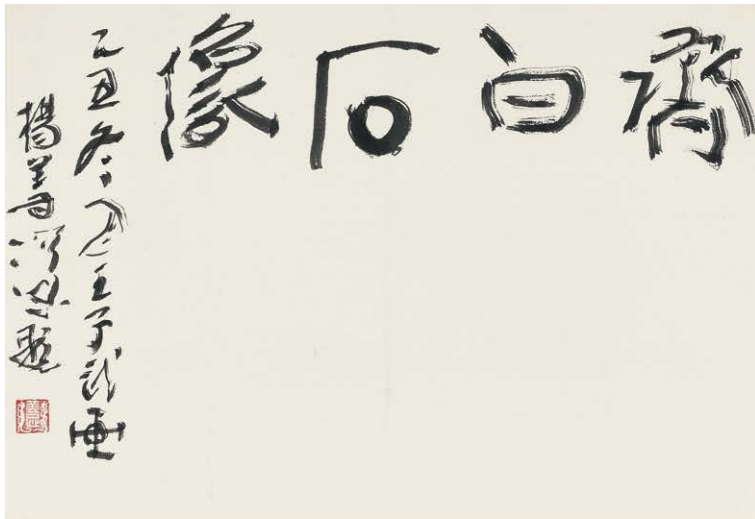 齊白石像
乙丑冬王子武畫
楊善深題